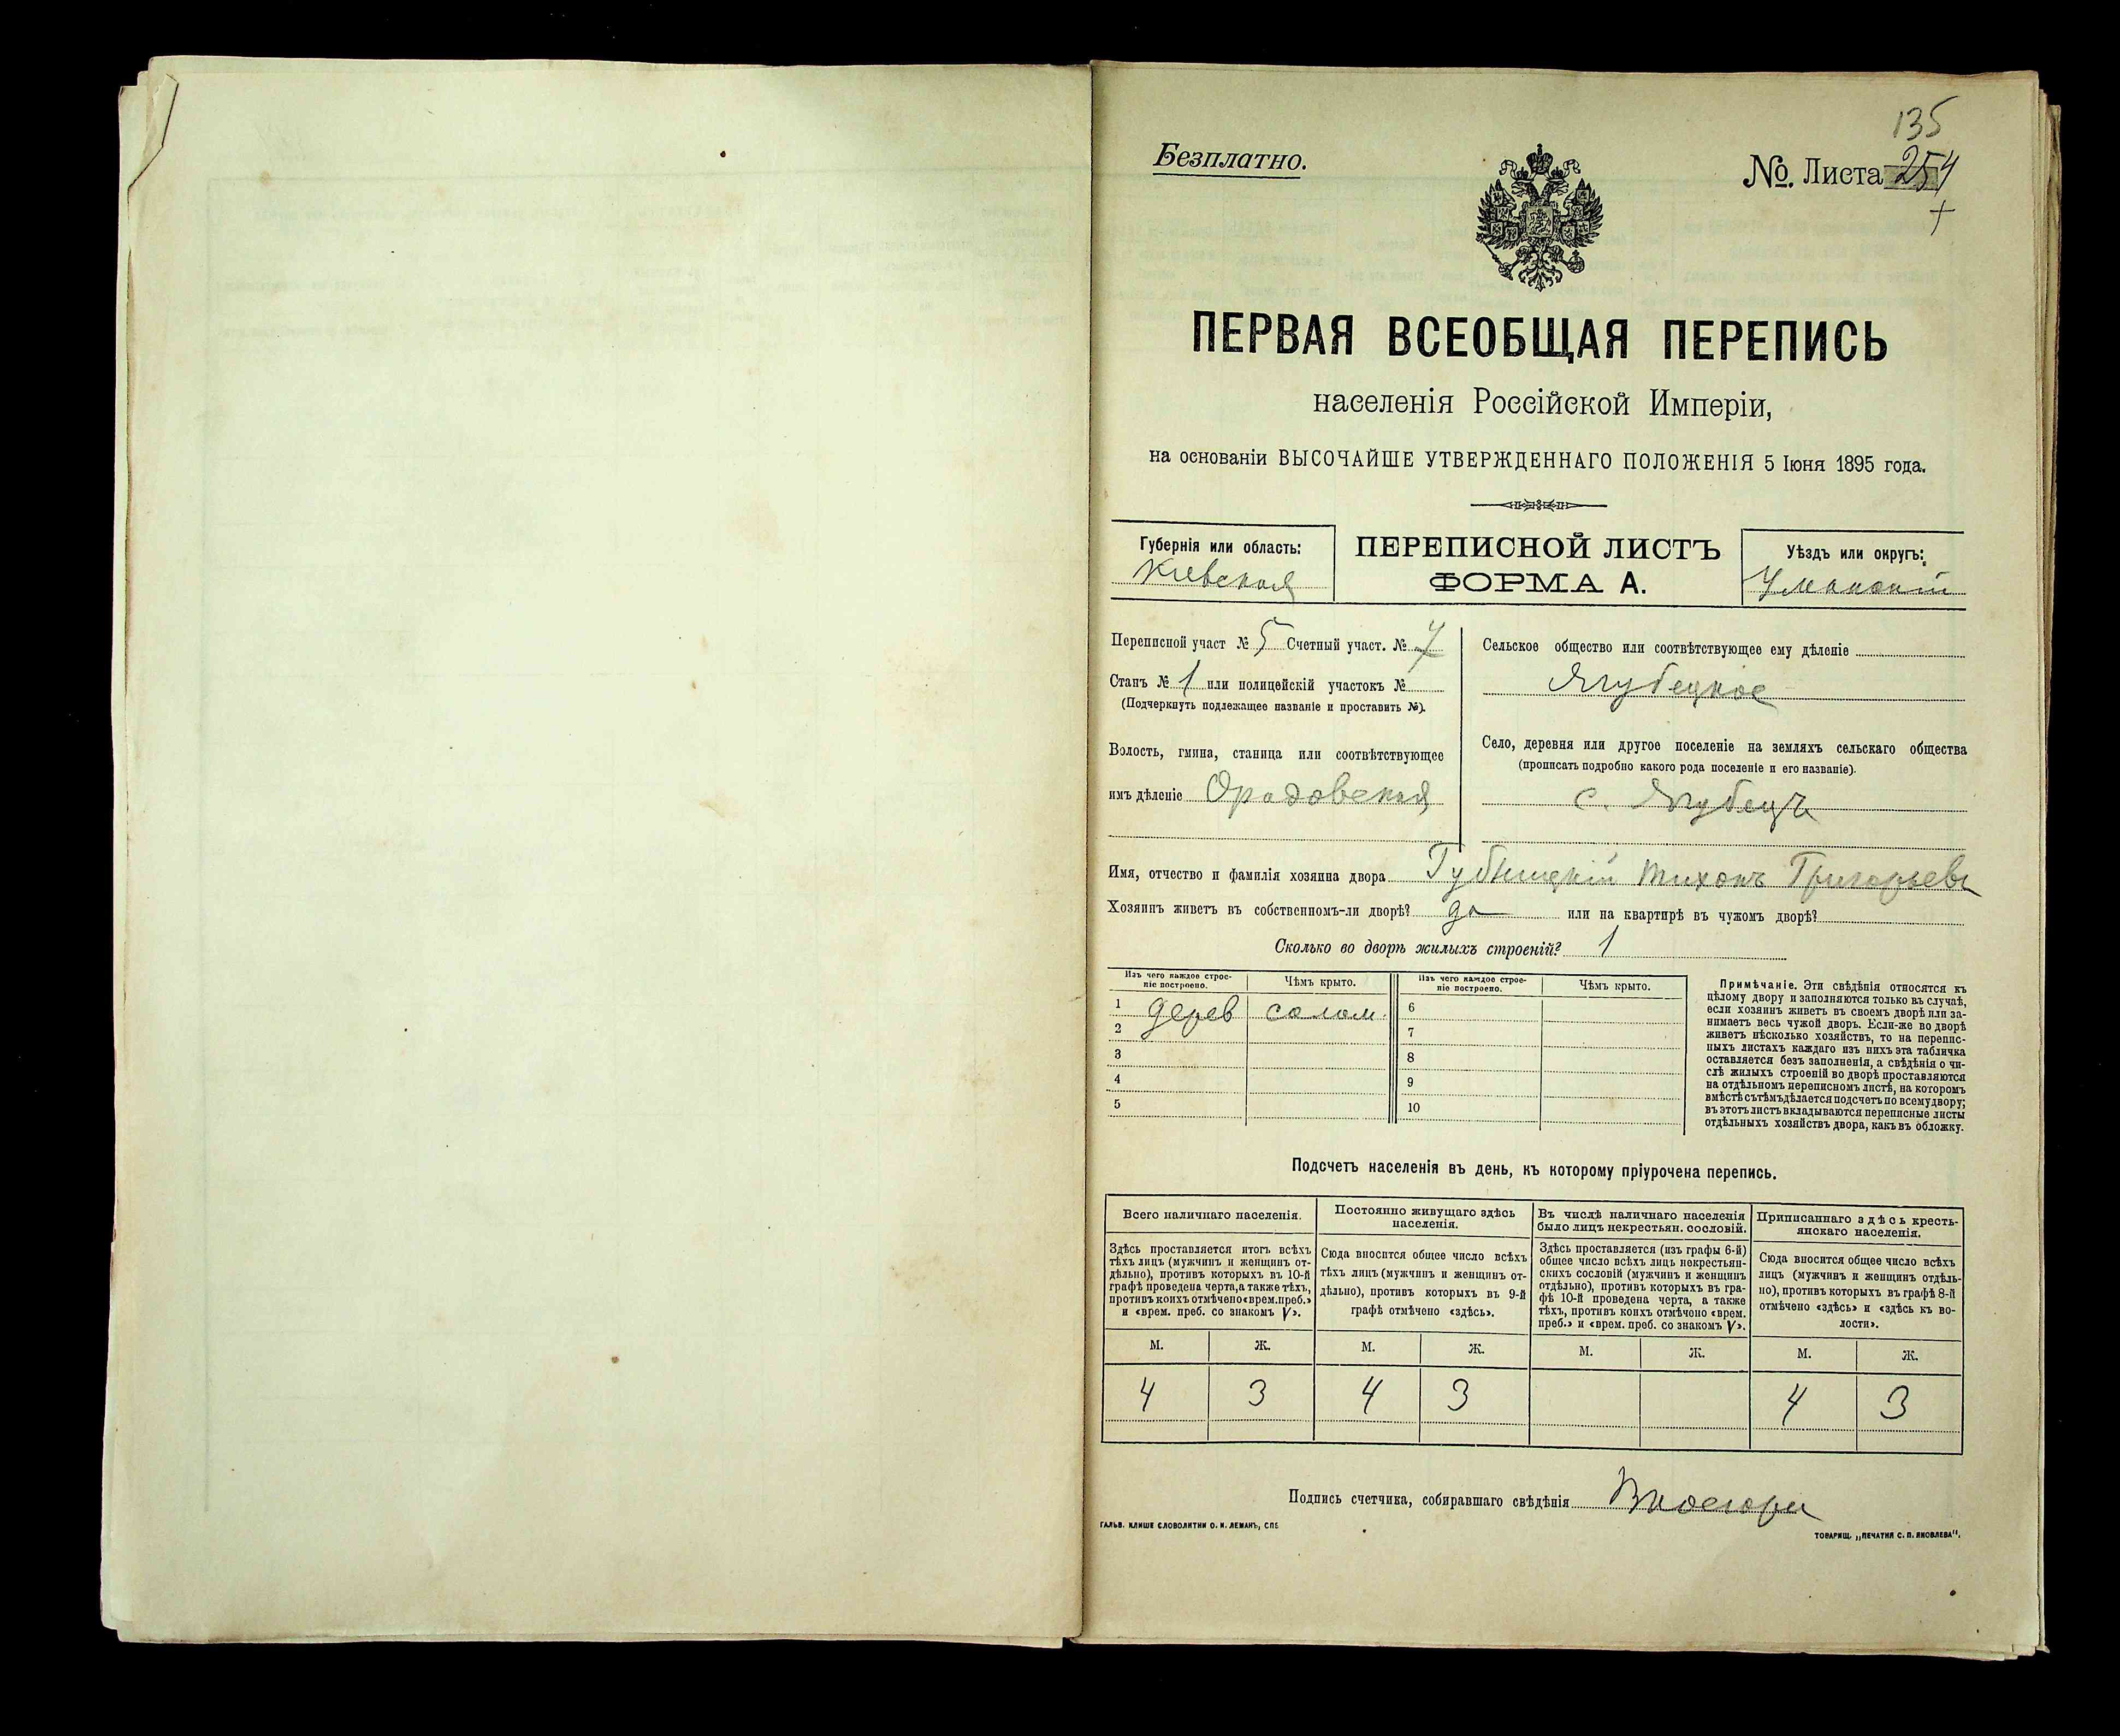 135
Безплатно.
№. Листа 254
ПЕРВАЯ ВСЕОБЩАЯ ПЕРЕПИСЬ
населенія Россійской Имперіи,
на основаніи ВЫСОЧАЙШЕ УТВЕРЖДЕННАГО ПОЛОЖЕНІЯ 5 Іюня 1895 года.
Губернія или область:
Кіевская
ПЕРЕПИСНОЙ ЛИСТЪ
ФОРМА А.
Уѣздъ или округъ:
Уманскій
Переписной участ № 5 Счетный участ. № 7
Станъ № 1 или полицейскій участокъ №
(Подчеркнуть подлежащее названіе и проставить №).
Волость, гмина, станица или соотвѣтствующее
имъ дѣленіе Орадовская
Сельское общество или соотвѣтствующее ему дѣленіе
Ягубецкое
Село, деревня или другое поселеніе на земляхъ сельскаго общества
(прописать подробно какого рода поселеніе и его названіе).
с. Ягубецъ
Имя, отчество и фамилія хозяина двора Тихонъ Григорьевъ
Хозяинъ живетъ въ собственномъ-ли дворѣ? да или на квартирѣ въ чужомъ дворѣ?
Сколько во дворѣ жилыхъ строеній? 1
Изъ чего каждое строе-
ніе построено.
Чѣмъ крыто.
1 дерев солом.
2
3
4
5
Изъ чего каждое строе-
ніе построено.
Чѣмъ крыто.
6
7
8
9
10
Примѣчаніе. Эти свѣдѣнія относятся къ
цѣлому двору и заполняются только въ случаѣ,
если хозяинъ живетъ въ своемъ дворѣ или за-
нимаетъ весь чужой дворъ. Если-же во дворѣ
живетъ нѣсколько хозяйствъ, то на перепис-
ныхъ листахъ каждаго изъ нихъ эта табличка
оставляется безъ заполненія, а свѣдѣнія о чи-
слѣ жилыхъ строеній во дворѣ проставляются
на отдѣльномъ переписномъ листѣ, на которомъ
вмѣстѣ съ тѣмъ дѣлается подсчетъ по всему двору;
въ этотъ листъ вкладываются переписные листы
отдѣльныхъ хозяйствъ двора, какъ въ обложку.
Подсчетъ населенія въ день, къ которому пріурочена перепись.
Всего наличнаго населенія.
Здѣсь проставляется итогъ всѣхъ
тѣхъ лицъ (мужчинъ и женщинъ от-
дѣльно), противъ которыхъ въ 10-й
графѣ проведена черта, а также тѣхъ,
противъ коихъ отмѣчено «врем. преб.»
и «врем. преб. со знакомъ V».
М. Ж.
4 3
Постоянно живущаго здѣсь
населенія.
Сюда вносится общее число всѣхъ
тѣхъ лицъ (мужчинъ и женщинъ от-
дѣльно), противъ которыхъ въ 9-й
графѣ отмѣчено «здѣсь».
М. Ж.
4 3
Въ числѣ наличнаго населенія
было лицъ некрестьян. сословій.
Здѣсь проставляется (изъ графы 6-й)
общее число всѣхъ лицъ некрестьян-
скихъ сословій (мужчинъ и женщинъ
отдѣльно), противъ которыхъ въ гра-
фѣ 10-й проведена черта, а также
тѣхъ, противъ коихъ отмѣчено «врем.
преб.» и «врем. преб. со знакомъ V».
М. Ж.
Приписаннаго здѣсь кресть-
янскаго населенія.
Сюда вносится общее число всѣхъ
лицъ (мужчинъ и женщинъ отдѣль-
но), противъ которыхъ въ графѣ 8-й
отмѣчено «здѣсь» и «здѣсь къ во-
лости».
М. Ж.
4 3
Подпись счетчика, собиравшаго свѣдѣнія
ГАЛЬВ. КЛИШЕ СЛОВОЛИТНИ О. И. ЛЕМАНЪ, СПБ
ТОВАРИЩ. „ПЕЧАТНЯ С. П. ЯКОВЛЕВА".